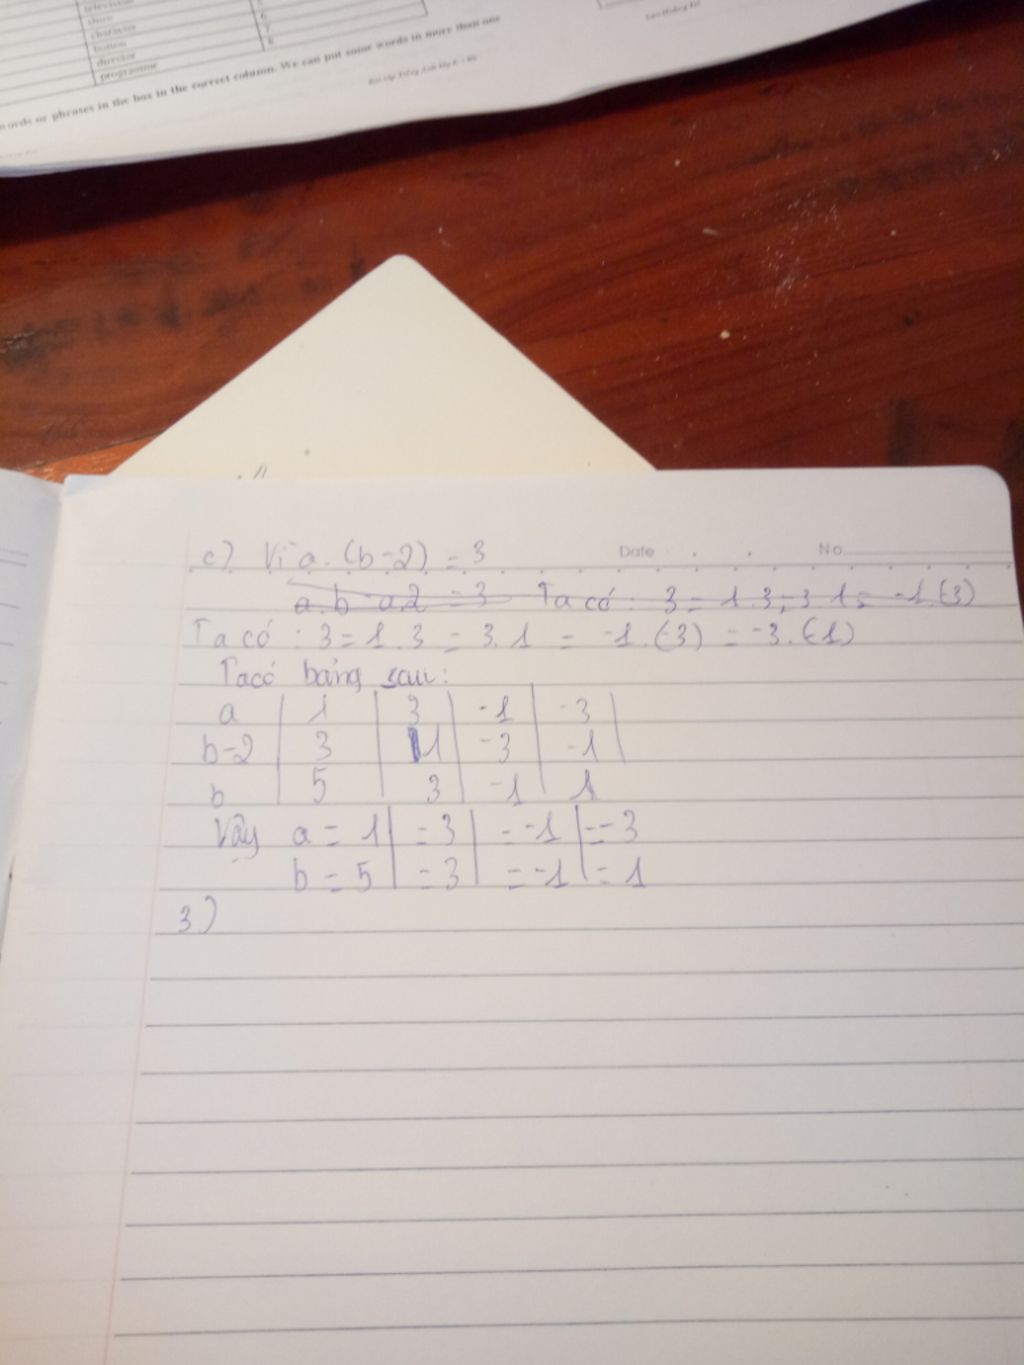 television
show
character
button
director
programme
6
7
8
words or phrases in the box in the correct column. We can put some words in more than one
c) Vì a. (b-2) = 3
Date No
a.b-a.2 = 3 Ta có: 3 = 1.3 = 3.1 = -1.(-3)
Ta có : 3 = 1.3 = 3.1 = -1.(-3) = -3.(-1)
Ta có bảng sau:
a | 1 | 3 | -1 | -3 |
b-2 | 3 | 1 | -3 | -1 |
b | 5 | 3 | -1 | 1
Vậy a = 1 | = 3 | = -1 | = -3
b = 5 | = 3 | = -1 | = 1
3)